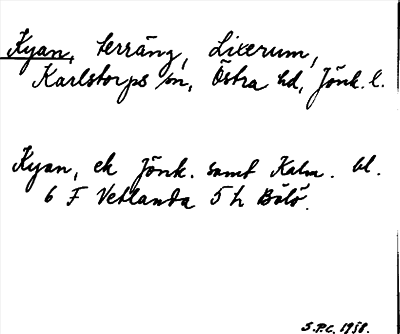 Kyan, terräng, Lixerum,
Karlstorps sn, Östra hd, Jönk. l.
Kyan, ek Jönk. samt Kalm. bl.
6 F Vetlanda 5 h Bölö.
S.P.C. 1958.